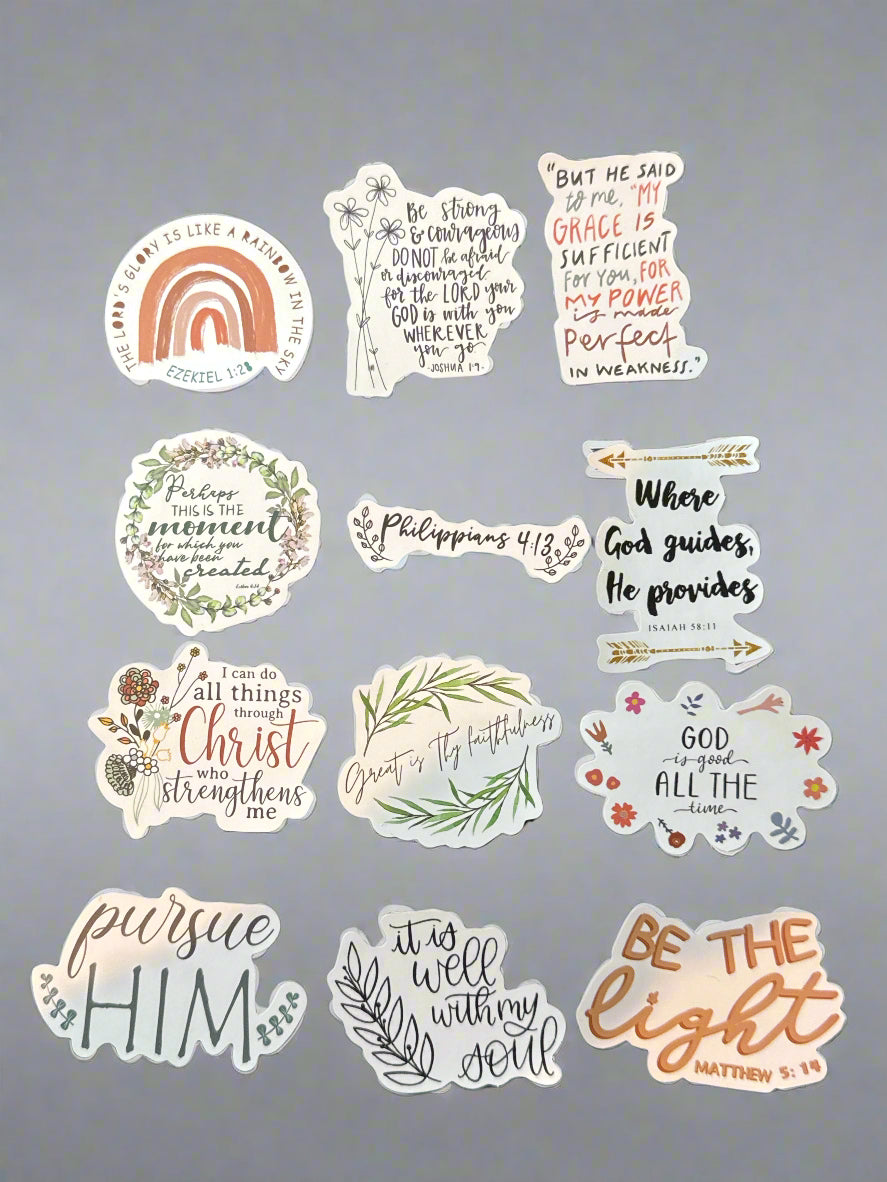 THE LORD'S GLORY IS LIKE A RAINBOW IN THE SKY
EZEKIEL 1:28
Be strong
& courageous
DO NOT be afraid
or discouraged
for the LORD your
GOD is with you
WHEREVER
you go
-JOSHUA 1:9-
"BUT HE SAID
to me, "MY
GRACE IS
SUFFICIENT
FOR YOU, FOR
MY POWER
is made
Perfect
IN WEAKNESS."
Perhaps
THIS IS THE
moment
for which you
have been
created
Esther 4:14
Philippians 4:13
Where
God guides,
He provides
ISAIAH 58:11
I can do
all things
through
Christ
who
strengthens
me
Great is Thy faithfulness
GOD
is good
ALL THE
time
pursue
HIM
it is
well
with my
soul
BE THE
light
MATTHEW 5:14